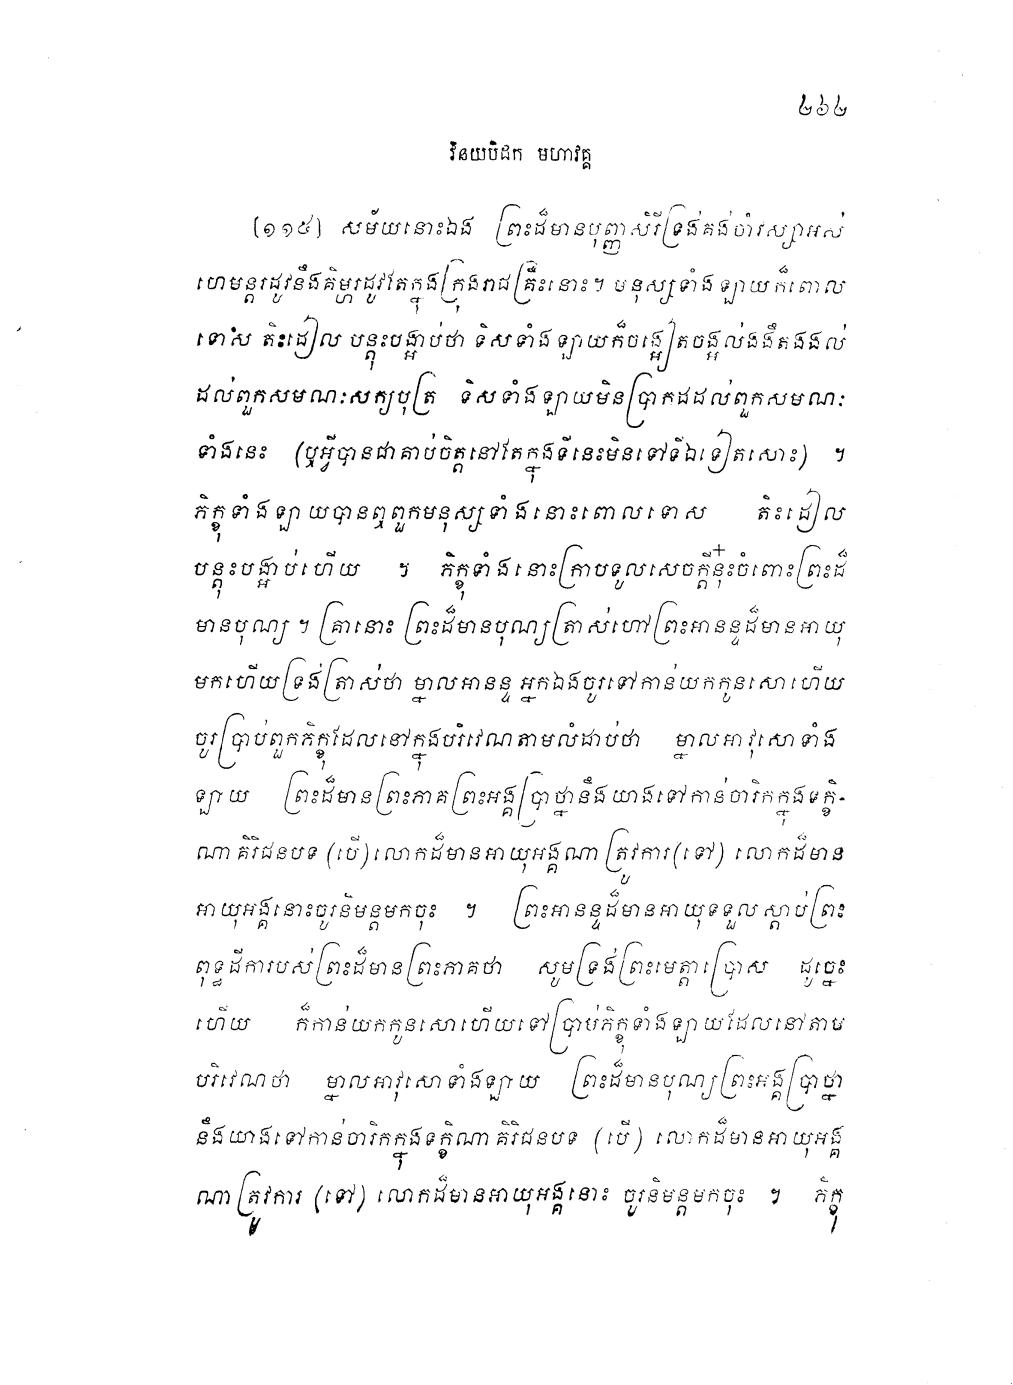 ២៦២
វិនយបិដក មហាវគ្គ
(១១៥) សម័យនោះឯង ព្រះដ៏មានបុញ្ញសិរីទ្រង់គង់ចាំវស្សាអស់
ហេមន្តរដូវនឹងគិម្ហរដូវតែក្នុងក្រុងរាជគ្រឹះនោះ។ មនុស្សទាំងឡាយក៏ពោល
ទោស តិះដៀល បន្តុះបង្អាប់ថា ទិសទាំងឡាយក៏ចង្អៀតចង្អល់ងងឹតងងល់
ដល់ពួកសមណៈសក្យបុត្រ ទិសទាំងឡាយមិនប្រាកដដល់ពួកសមណៈ
ទាំងនេះ (ឬអ្វីបានជាគាប់ចិត្តនៅតែក្នុងទីនេះមិនទៅទីឯទៀតសោះ) ។
ភិក្ខុទាំងឡាយបានឮពួកមនុស្សទាំងនោះពោលទោស តិះដៀល
បន្តុះបង្អាប់ហើយ ។ ភិក្ខុទាំងនោះក្រាបទូលសេចក្តីនុ៎ះចំពោះព្រះដ៏
មានបុណ្យ ។ គ្រានោះ ព្រះដ៏មានបុណ្យត្រាស់ហៅព្រះអានន្ទដ៏មានអាយុ
មកហើយទ្រង់ត្រាស់ថា ម្នាលអានន្ទ អ្នកឯងចូរទៅកាន់យកកូនសោហើយ
ចូរប្រាប់ពួកភិក្ខុដែលនៅក្នុងបរិវេណតាមលំដាប់ថា ម្នាលអាវុសោទាំង
ឡាយ ព្រះដ៏មានព្រះភាគព្រះអង្គប្រាថ្នានឹងយាងទៅកាន់ចារិកក្នុងទក្ខិ-
ណាគិរិជនបទ (បើ)លោកដ៏មានអាយុអង្គណាត្រូវការ(ទៅ) លោកដ៏មាន
អាយុអង្គនោះចូរនិមន្តមកចុះ ។ ព្រះអានន្ទដ៏មានអាយុទទួលស្តាប់ព្រះ
ពុទ្ធដីការបស់ព្រះដ៏មានព្រះភាគថា សូមទ្រង់ព្រះមេត្តាប្រោស ដូច្នេះ
ហើយ ក៏កាន់យកកូនសោហើយទៅប្រាប់ភិក្ខុទាំងឡាយដែលនៅតាម
បរិវេណថា ម្នាលអាវុសោទាំងឡាយ ព្រះដ៏មានបុណ្យព្រះអង្គប្រាថ្នា
នឹងយាងទៅកាន់ចារិកក្នុងទក្ខិណាគិរិជនបទ (បើ) លោកដ៏មានអាយុអង្គ
ណាត្រូវការ (ទៅ) លោកដ៏មានអាយុអង្គនោះ ចូរនិមន្តមកចុះ ។ ភិក្ខុ